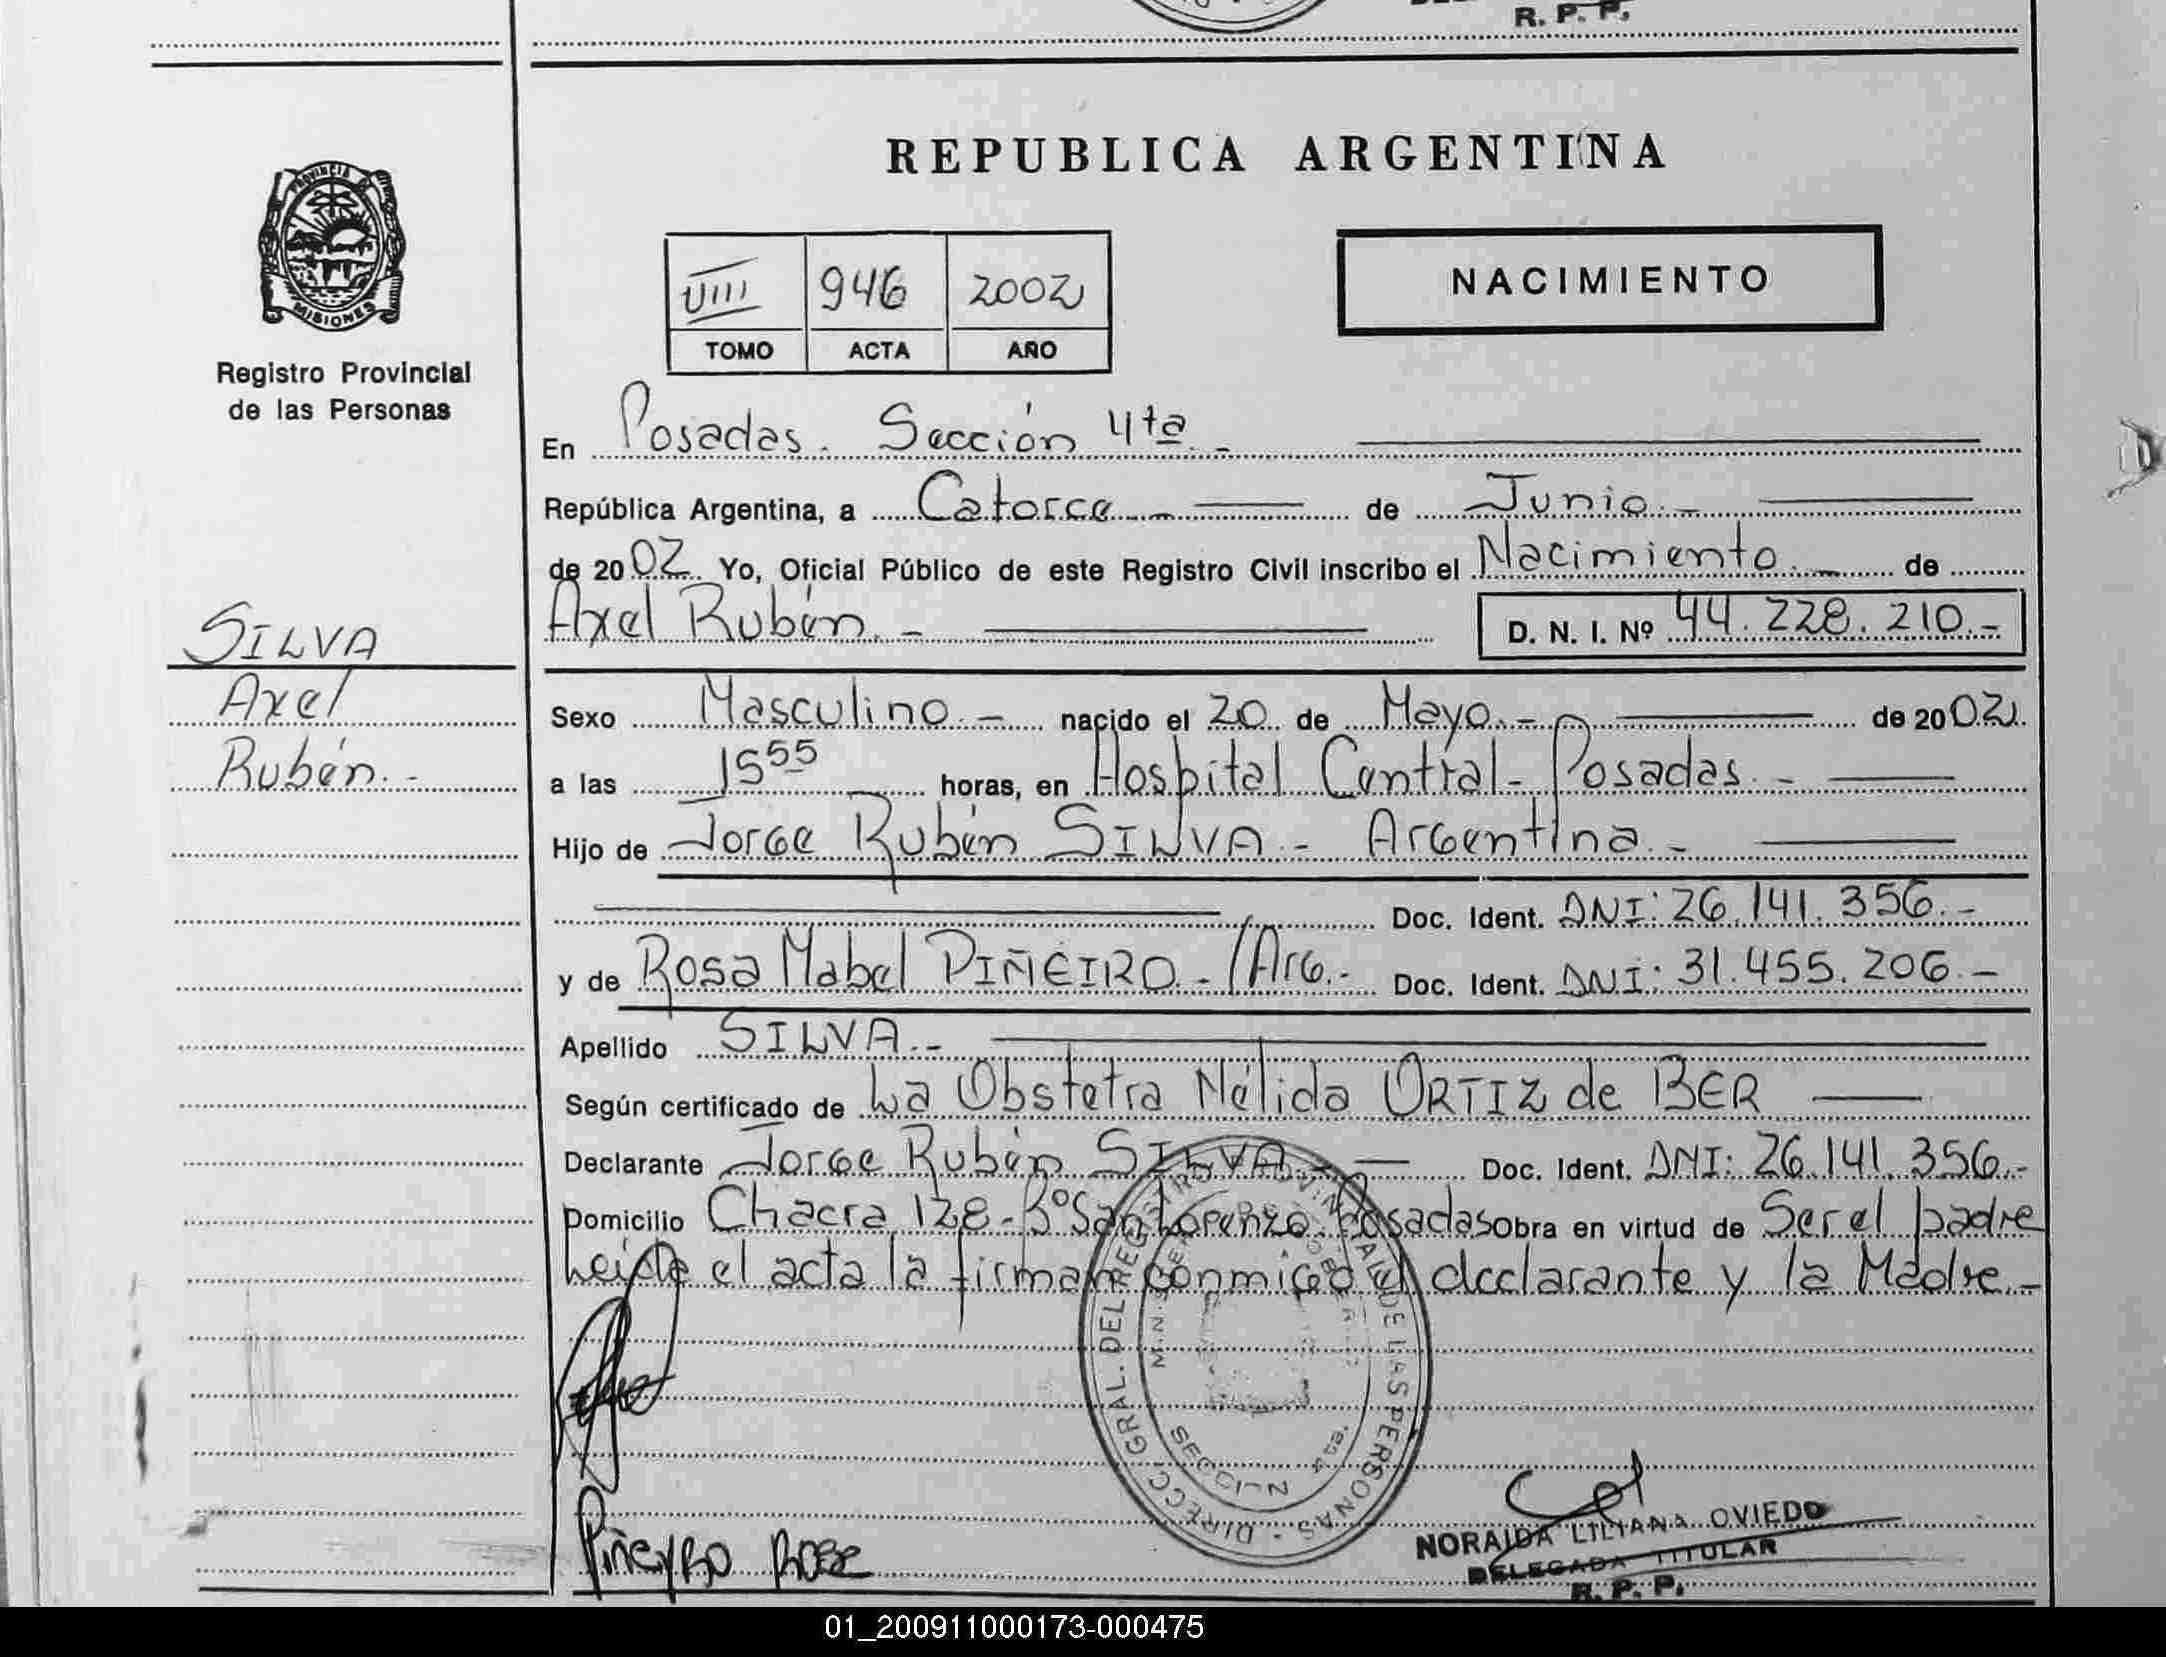 R. P. P.
PROVINCIA DE
MISIONES
Registro Provincial
de las Personas
SILVA
Axel
Rubén.-
REPUBLICA ARGENTINA
VIII 946 2002
TOMO ACTA AÑO
NACIMIENTO
En Posadas. Sección 4ta.-
República Argentina, a Catorce.- de Junio.-
de 2002. Yo, Oficial Público de este Registro Civil inscribo el Nacimiento.- de
Axel Rubén.- D. N. I. Nº 44.228.210.-
Sexo Masculino.- nacido el 20 de Mayo.- de 2002.
a las 15 55 horas, en Hospital Central-Posadas.-
Hijo de Jorge Rubén SILVA.- Argentina.-
Doc. Ident. DNI: 26.141.356.-
y de Rosa Mabel PIÑEIRO.-/Arg.- Doc. Ident. DNI: 31.455.206.-
Apellido SILVA.-
Según certificado de La Obstetra Nélida ORTIZ de BER
Declarante Jorge Rubén SILVA.- Doc. Ident. DNI: 26.141.356.-
Domicilio Chacra 128-Bº San Lorenzo. Posadas Obra en virtud de Ser el padre
Leida el acta la firman conmigo el declarante y la Madre.-
DIRECC. GRAL. DEL REGISTRO PROVINCIAL DE LAS PERSONAS
SECCION 4ta.
Piñeyro Rosa
NORAIDA LILIANA OVIEDO
DELEGADA TITULAR
R. P. P.
01_200911000173-000475